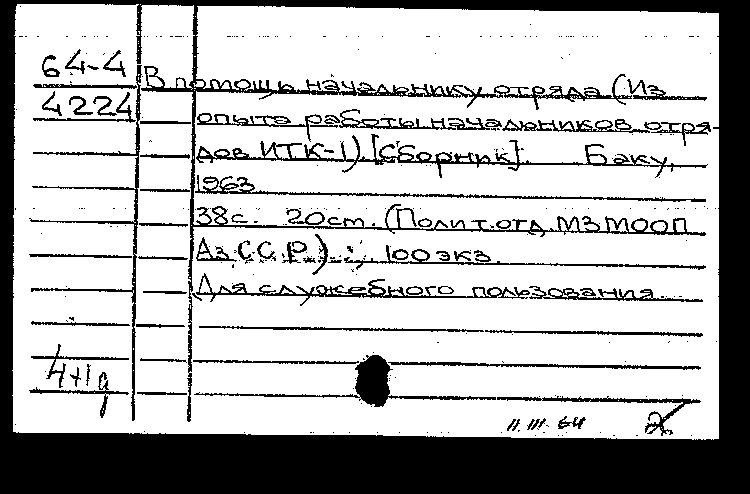 64-4 В помощь начальнику отряда (Из
4224 опыта работы начальников отря-
дов ИТК-1). [Сборник]. Баку,
1963.
38с. 20см. (Полит.отд. МЗ МООП
Аз ССР). 100 экз.
Для служебного пользования.
4+1д
11 III 64